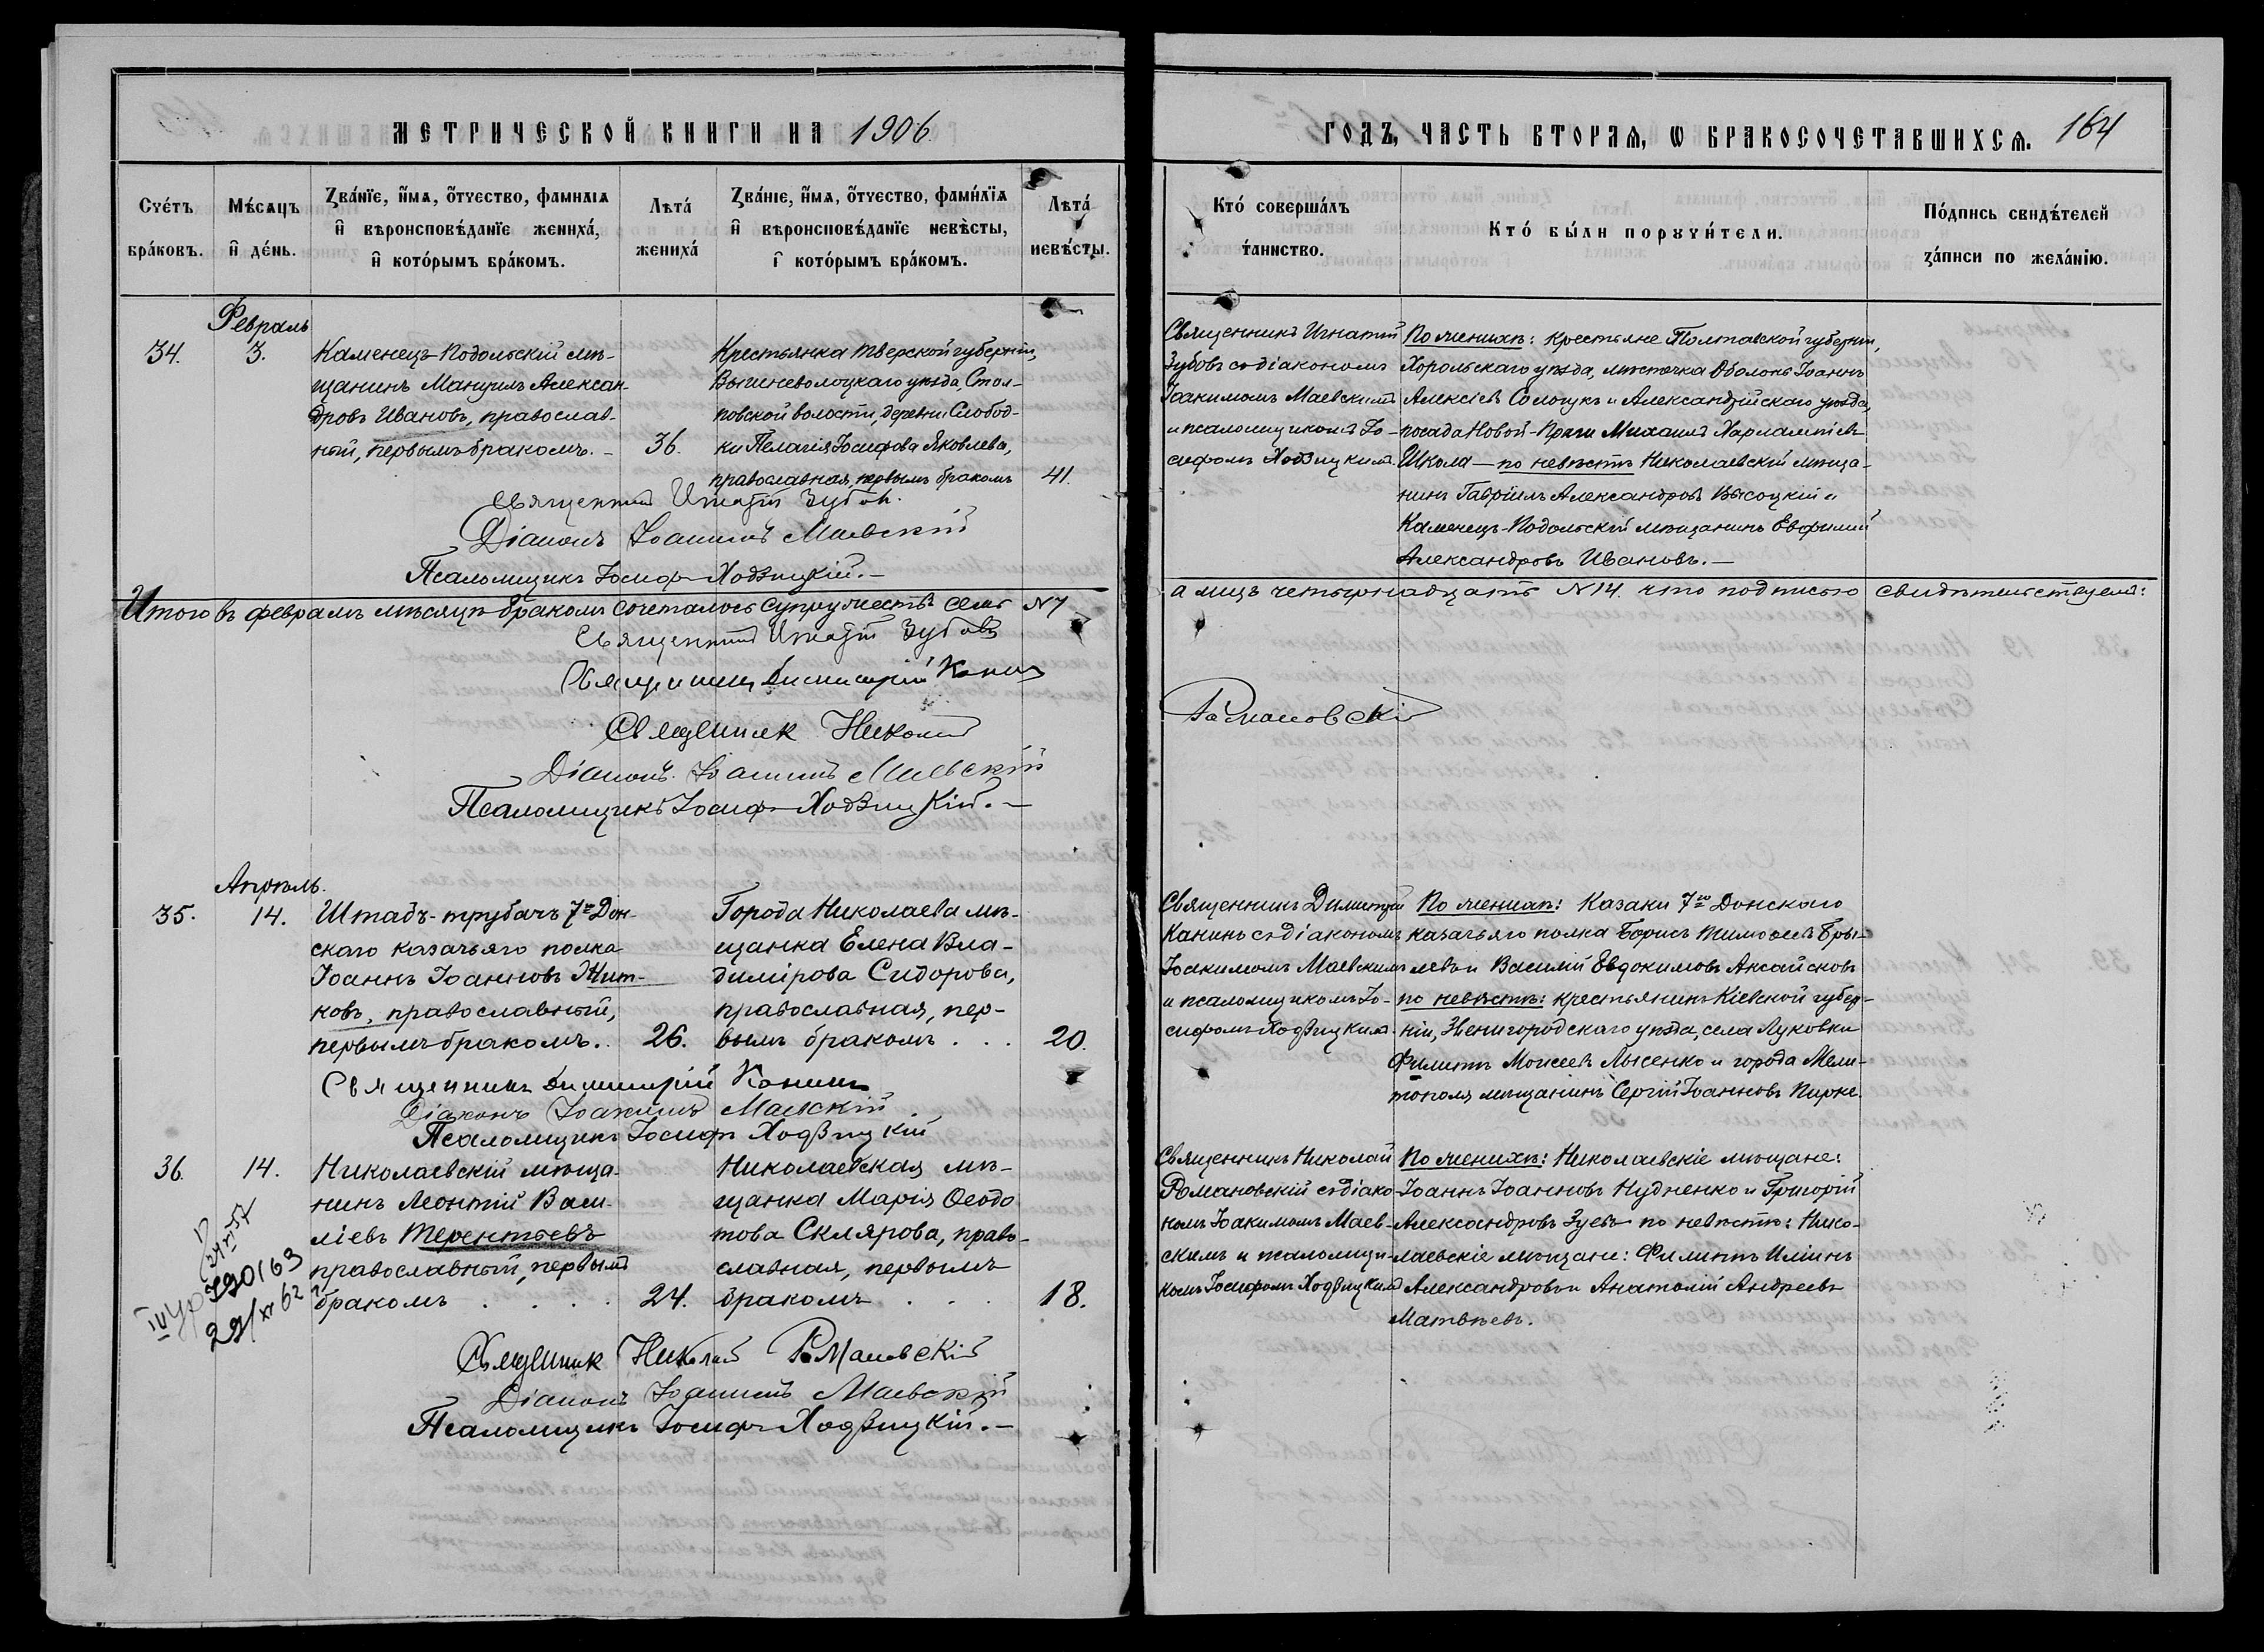 МЕТРИЧЕСКОЙ КНИГИ НА 1906.
ГОДЪ, ЧАСТЬ ВТОРАЯ, Ѡ БРАКОСОЧЕТАВШИХСЯ. 164
Счетъ браковъ.
Мѣсяцъ и день.
Званіе, имя, отчество, фамилія и вѣроисповѣданіе жениха, и которымъ бракомъ.
Лѣта жениха
Званіе, имя, отчество, фамилія и вѣроисповѣданіе невѣсты, и которымъ бракомъ.
Лѣта невѣсты.
Кто совершалъ таинство.
Кто были поручители.
Подпись свидѣтелей записи по желанію.
Февраль
34. 3.
Каменецъ-Подольскій мѣ-
щанинъ Мануилъ Алексан-
дровъ Ивановъ, православ-
ный, первымъ бракомъ. –
36.
Крестьянка Тверской губерніи,
Вышневолоцкаго уѣзда, Стол-
повской волости, деревни Слобод-
ки Пелагія Іосифова Яковлева,
православная, первымъ бракомъ
41.
Священникъ Игнатій
Зубовъ съ діакономъ
Іоакимомъ Маевскимъ
и псаломщикомъ Іо-
сифомъ Ходзицкимъ.
По женихѣ: крестьяне Полтавской губерніи,
Хорольскаго уѣзда, мѣстечка Оболонь Іоаннъ
Алексіевъ Сологукъ и Александрійскаго уѣзда,
посада Новой-Праги Михаилъ Харлампіевъ
Школа – по невѣстѣ Николаевскій мѣща-
нинъ Гавріилъ Александровъ Высоцкій и
Каменецъ-Подольскій мѣщанинъ Евфимій
Александровъ Ивановъ. –
Священникъ Игнатій Зубовъ.
Діаконъ Іоакимъ Маевскій
Псаломщикъ Іосифъ Ходзицкій. –
Итого въ февралѣ мѣсяцѣ бракомъ сочеталось супружествъ семь №7
а лицъ четырнадцать №14. что подписью свидѣтельствуемъ:
Священникъ Игнатій Зубовъ
Священникъ Димитрій Канинъ
Священник Николай
Романовскій
Діаконъ Іоакимъ Маевскій
Псаломщикъ Іосифъ Ходзицкій. –
Апрѣль.
35. 14.
Штабъ-трубачъ 7го Дон-
скаго казачьяго полка
Іоаннъ Іоанновъ Жит-
ковъ, православный,
первымъ бракомъ..
26.
Города Николаева мѣ-
щанка Елена Вла-
димірова Сидорова,
православная, пер-
вымъ бракомъ . . .
20.
Священникъ Димитрій
Канинъ съ діакономъ
Іоакимомъ Маевскимъ
и псаломщикомъ Іо-
сифомъ Ходзицкимъ.
По женихѣ: Казаки 7го Донскаго
казачьяго полка Борисъ Тимоѳеевъ Бры-
левъ и Василій Евдокимовъ Аксайсковъ
по невѣстѣ: крестьянинъ Кіевской губер-
ніи, Звенигородскаго уѣзда, села Луковки
Филиппъ Моисеевъ Лысенко и города Мели-
тополя мѣщанинъ Сергій Іоанновъ Пирке.
Священникъ Димитрій Канинъ
Діаконъ Іоакимъ Маевскій.
Псаломщикъ Іосифъ Ходзицкій
36. 14.
Николаевскій мѣща-
нинъ Леонтій Васи-
ліевъ Терентьевъ
православный, первымъ
бракомъ . . . .
24.
Николаевская мѣ-
щанка Марія Ѳеодо
това Склярова, право-
славная, первымъ
бракомъ . . .
18.
Священникъ Николай
Романовскій съ діако-
номъ Іоакимомъ Маев-
скимъ и псаломщи-
комъ Іосифомъ Ходзицкимъ
По женихѣ: Николаевскіе мѣщане:
Іоаннъ Іоанновъ Нудненко и Григорій
Александровъ Зуевъ по невѣстѣ: Нико-
лаевскіе мѣщане: Филиппъ Иліинъ
Александровъ и Анатолій Андреевъ
Матвѣевъ.
790163
29/XI 62
Священник Николай Романовскій
Діаконъ Іоакимъ Маевскій
Псаломщикъ Іосифъ Ходзицкій. –